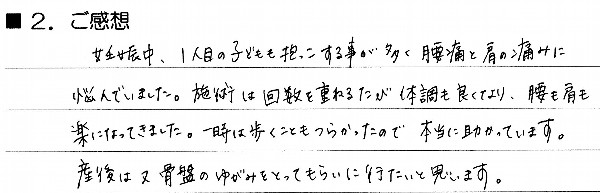 ■ 2. ご感想
妊娠中、1人目の子どもも抱っこする事が多く腰痛と肩の痛みに
悩んでいました。施術は回数を重ねるたび体調も良くなり、腰も肩も
楽になってきました。一時は歩くこともつらかったので本当に助かっています。
産後は又骨盤のゆがみをとってもらいに行たいと思います。